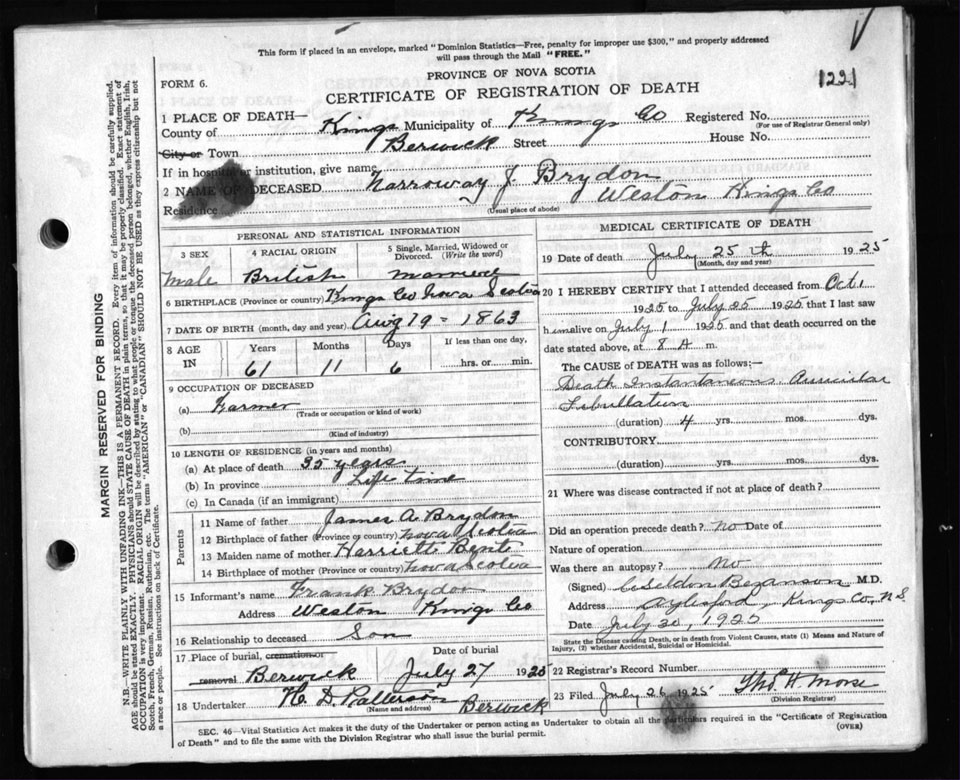 This form if placed in an envelope, marked "Dominion Statistics—Free, penalty for improper use $300," and properly addressed
will pass through the Mail "FREE."
PROVINCE OF NOVA SCOTIA
FORM 6.
CERTIFICATE OF REGISTRATION OF DEATH
1221
1 PLACE OF DEATH—
County of Kings Municipality of Kings Co Registered No.
(For use of Registrar General only)
City or Town Berwick Street House No.
If in hospital or institution, give name
2 NAME OF DECEASED Narroway J. Brydon
Residence Weston Kings Co
(Usual place of abode)
PERSONAL AND STATISTICAL INFORMATION
3 SEX 4 RACIAL ORIGIN 5 Single, Married, Widowed or Divorced. (Write the word)
Male British Married
6 BIRTHPLACE (Province or country) Kings Co Nova Scotia
7 DATE OF BIRTH (month, day and year) Aug 19 = 1863
8 AGE IN Years Months Days If less than one day,
61 11 6 hrs. or min.
9 OCCUPATION OF DECEASED
(a) Farmer
(Trade or occupation or kind of work)
(b)
(Kind of industry)
10 LENGTH OF RESIDENCE (in years and months)
(a) At place of death 35 years
(b) In province Life time
(c) In Canada (if an immigrant)
Parents
11 Name of father James A. Brydon
12 Birthplace of father (Province or country) Nova Scotia
13 Maiden name of mother Harriette
14 Birthplace of mother (Province or country) Nova Scotia
15 Informant's name Frank Brydon
Address Weston Kings Co
16 Relationship to deceased Son
17 Place of burial, cremation or removal Berwick Date of burial July 27 1925
18 Undertaker H. D. Patterson Berwick
(Name and address)
MEDICAL CERTIFICATE OF DEATH
19 Date of death July 25th 1925
(Month, day and year)
20 I HEREBY CERTIFY that I attended deceased from Oct 1
1925 to July 25 1925 that I last saw
him alive on July 1 1925 and that death occurred on the
date stated above, at 8 A m.
The CAUSE of DEATH was as follows:—
Death Instantaneous. Auricular
Fibrillation
(duration) 4 yrs. mos. dys.
CONTRIBUTORY
(duration) yrs. mos. dys.
21 Where was disease contracted if not at place of death?
Did an operation precede death? No Date of
Nature of operation
Was there an autopsy? No
(Signed) Seldon Bezanson M.D.
Address Aylesford, Kings Co, N.S.
Date July 30, 1925
State the Disease causing Death, or in death from Violent Causes, state (1) Means and Nature of
Injury, (2) whether Accidental, Suicidal or Homicidal.
22 Registrar's Record Number
23 Filed July 26 1925 Thos H Morse
(Division Registrar)
SEC. 46—Vital Statistics Act makes it the duty of the Undertaker or person acting as Undertaker to obtain all the particulars required in the "Certificate of Registration
of Death" and to file the same with the Division Registrar who shall issue the burial permit.
(OVER)
MARGIN RESERVED FOR BINDING
N.B.—WRITE PLAINLY WITH UNFADING INK—THIS IS A PERMANENT RECORD. Every item of information should be carefully supplied.
AGE should be stated EXACTLY. PHYSICIANS should STATE CAUSE OF DEATH in plain terms, so that it may be properly classified. Exact statement of
OCCUPATION is very important. RACIAL ORIGIN will be described by stating to what people or tongue the deceased person belonged, whether English, Irish,
Scotch, French, German, Russian, Ruthenian, etc. The terms "AMERICAN" or "CANADIAN" SHOULD NOT BE USED as they express citizenship but not
a race or people. See instructions on back of Certificate.